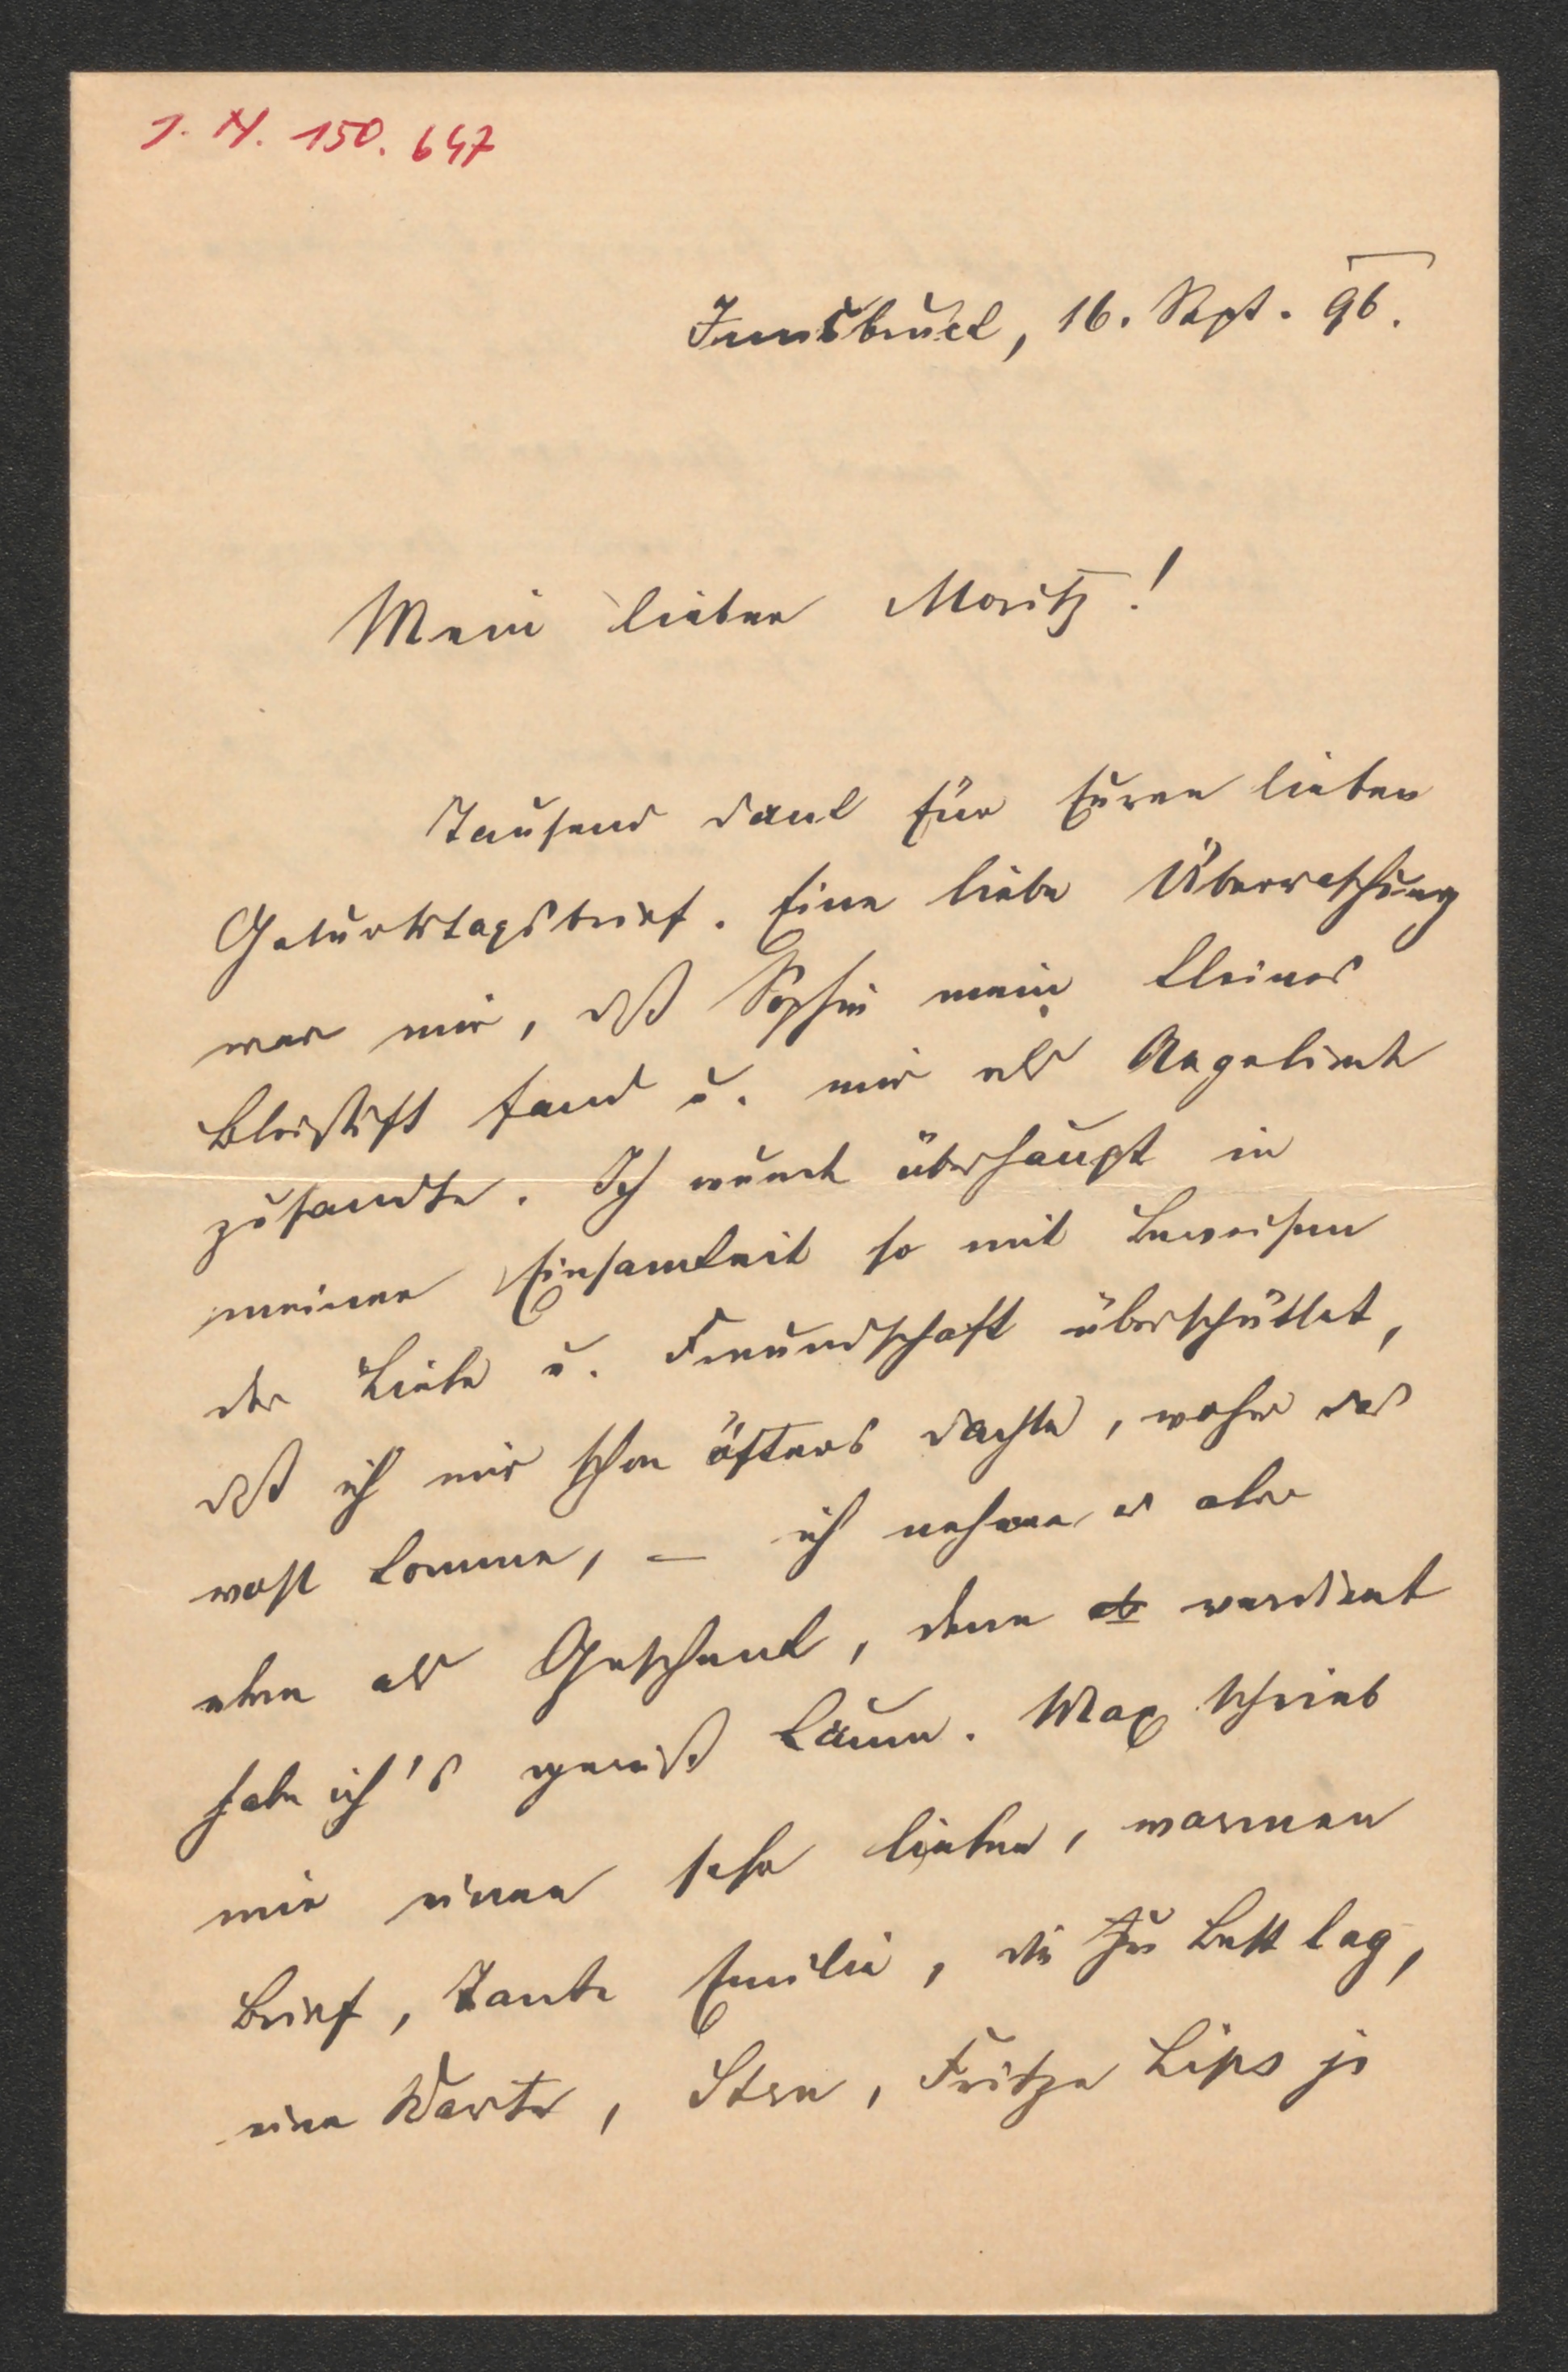 J. N. 150.647
Innsbruck, 16. Sept. 96.
Mein lieber Moritz!
Tausend Dank für Euren lieben
Geburtstagsbrief. Eine liebe Überraschung
war mir, dß Sophie mein kleines
Bleistift fand u. mir als Angebinde
zusandte. Ich wurde überhaupt in
meiner Einsamkeit so mit Beweisen
der Liebe u. Freundschaft überschüttet,
dß ich mir schon öfters dachte, woher das
wohl komme, – ich nehme es aber
eben als Geschenk, denn verdient
habe ich's gewiß kaum. Max schrieb
mir einen sehr lieben, warmen
Brief, Tante Emilie, die zu Bett lag,
eine Karte, Fritze Lips je